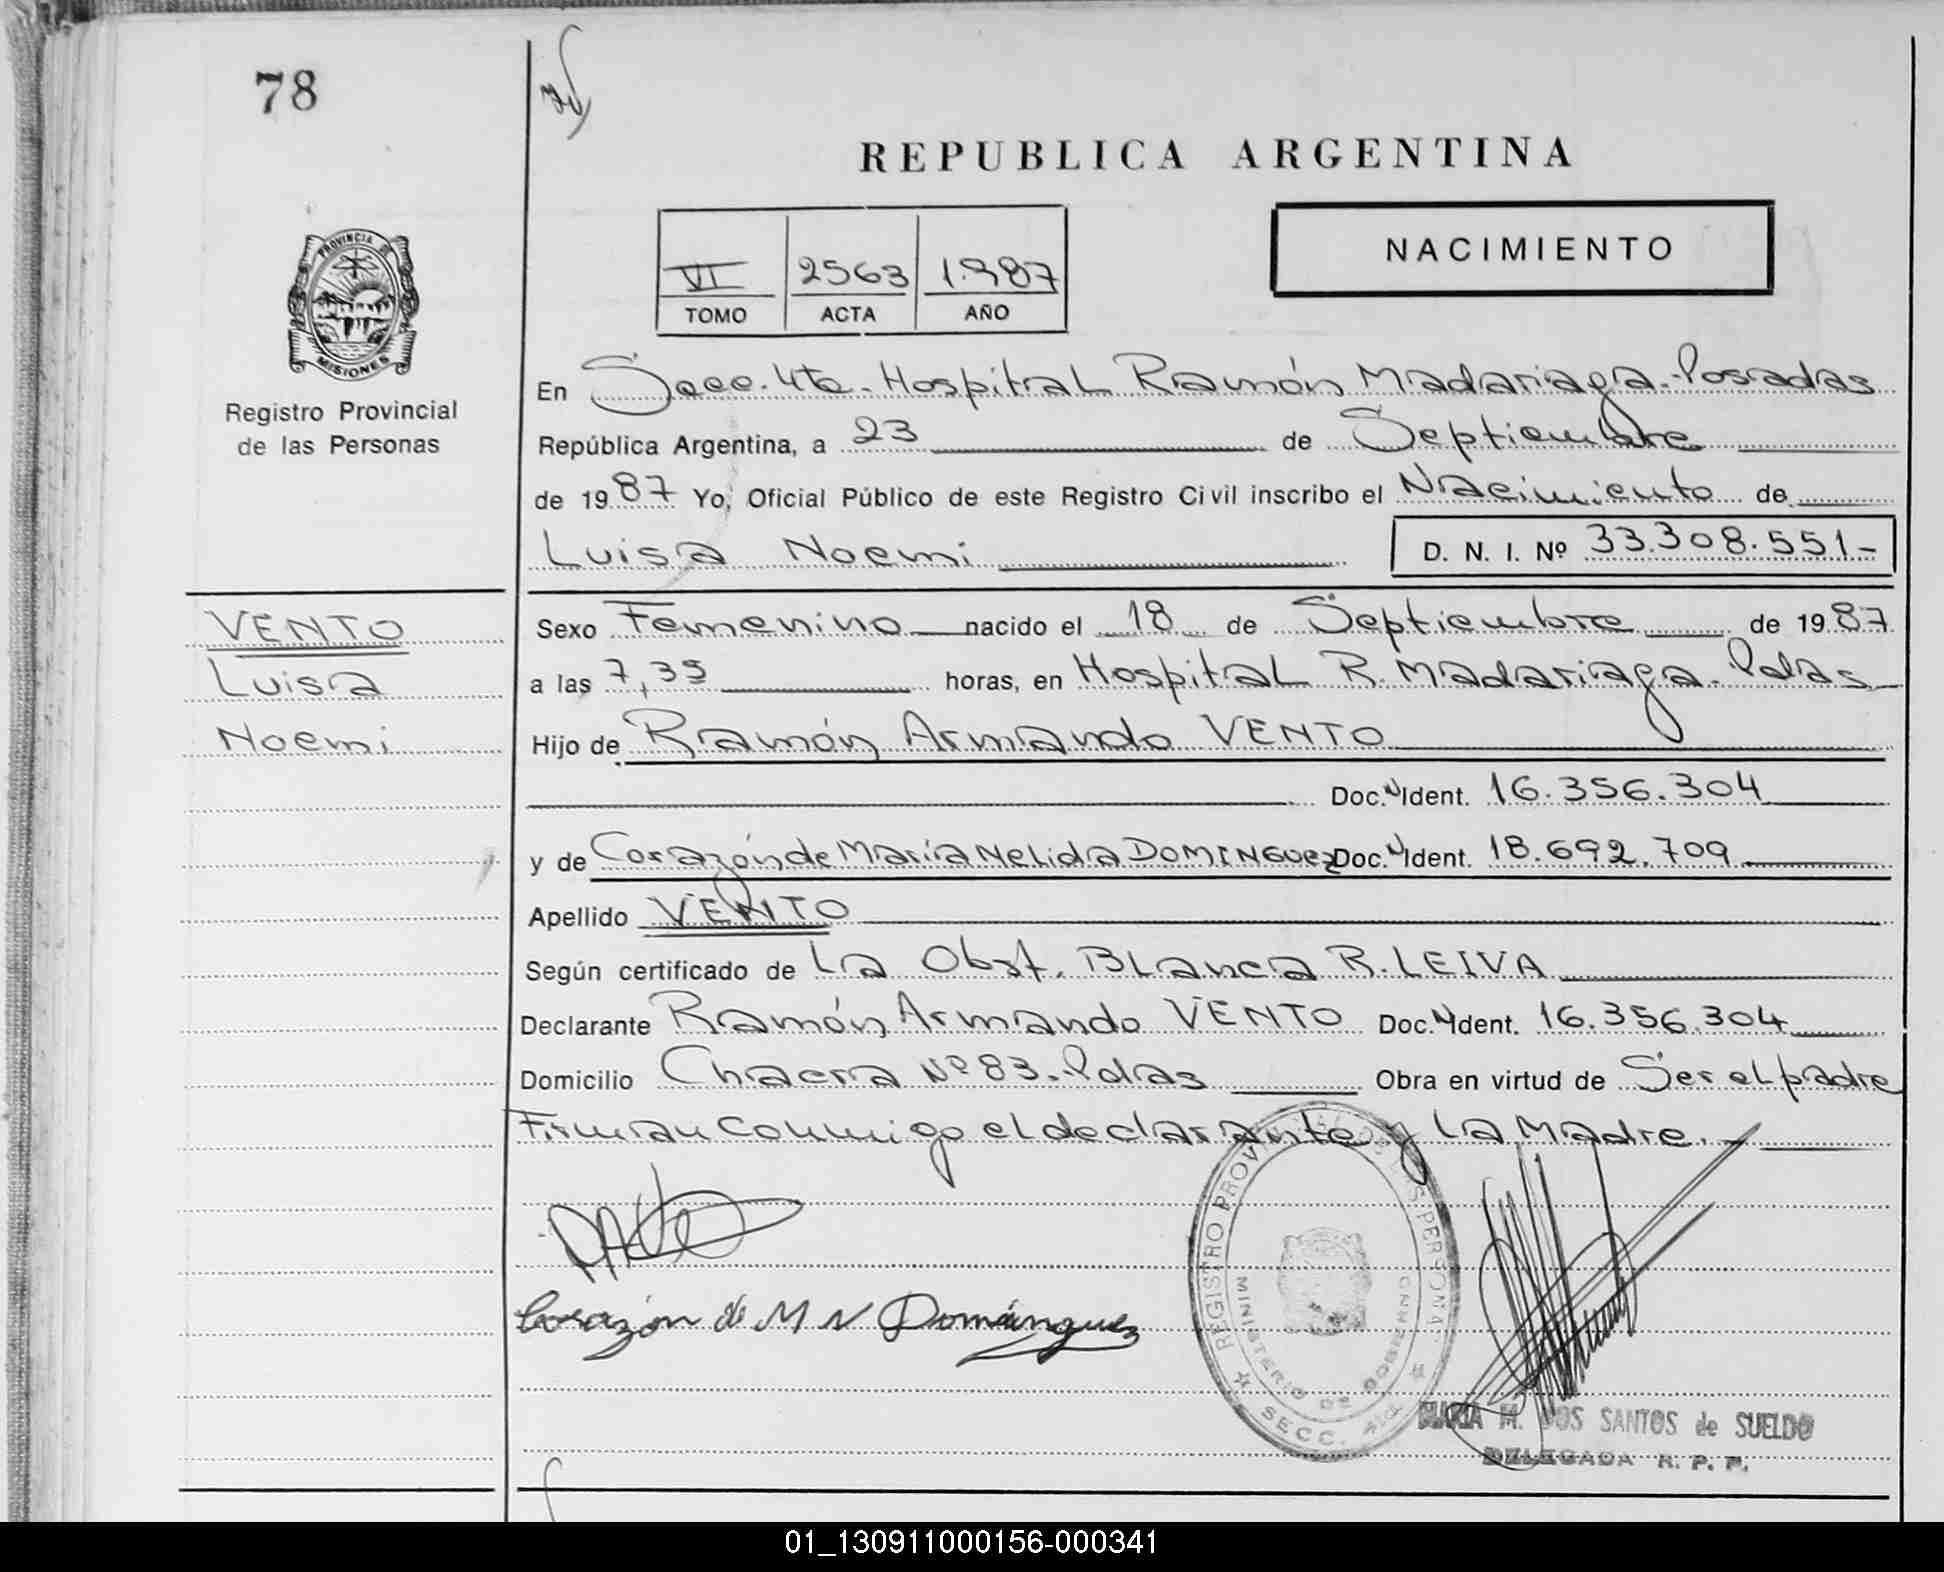 78
REPUBLICA ARGENTINA
VI 2563 1.987
TOMO ACTA AÑO
NACIMIENTO
PROVINCIA DE
MISIONES
Registro Provincial
de las Personas
En Secc. 4ta. Hospital Ramón Madariaga. Posadas
República Argentina, a 23 de Septiembre
de 1987 Yo, Oficial Público de este Registro Civil inscribo el Nacimiento de
Luisa Noemi D. N. I. Nº 33.308.551-
VENTO
Luisa
Noemi
Sexo Femenino nacido el 18 de Septiembre de 1987
a las 7,35 horas, en Hospital R. Madariaga. Pdas
Hijo de Ramón Armando VENTO
Doc. N Ident. 16.356.304
y de Corazón de María Nelida DOMINGuez Doc. N Ident. 18.692.709
Apellido VENTO
Según certificado de La Obst. Blanca R. LEIVA
Declarante Ramón Armando VENTO Doc. N Ident. 16.356.304
Domicilio Chacra Nº 83. Pdas Obra en virtud de Ser el padre
Firman conmigo el declarante y La Madre.-
Corazón de M N Domínguez
REGISTRO PROVINCIAL DE LAS PERSONAS
MINISTERIO DE GOBIERNO
SECC. 4ta
MARIA M. DOS SANTOS de SUELDO
DELEGADA R. P. P.
01_130911000156-000341